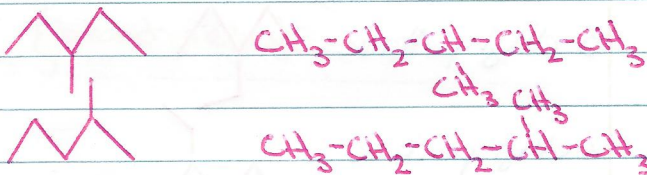 CH₃-CH₂-CH-CH₂-CH₃
CH₃
CH₃
CH₃-CH₂-CH₂-CH-CH₃